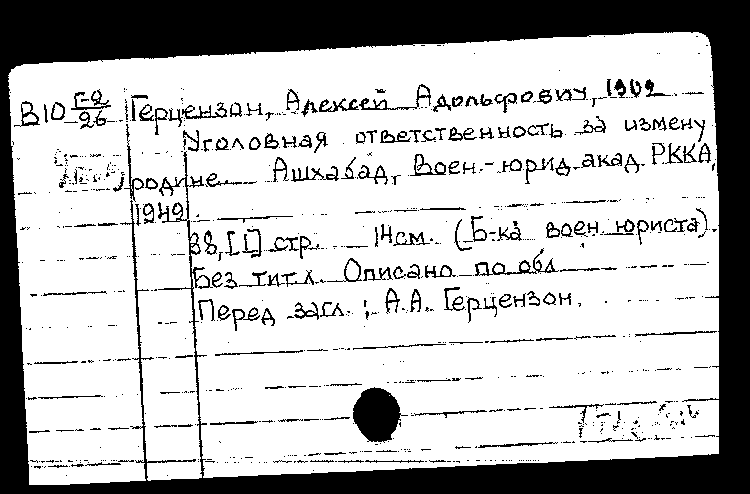 В10 Г-2/26 Герцензон, Алексей Адольфович, 1902
Уголовная ответственность за измену
родине. Ашхабад, Воен.-юрид. акад. РККА,
1942.
38, [1] стр. 14см. (Б-ка воен. юриста).
Без тит. л. Описано по обл.
Перед загл.: А.А. Герцензон.